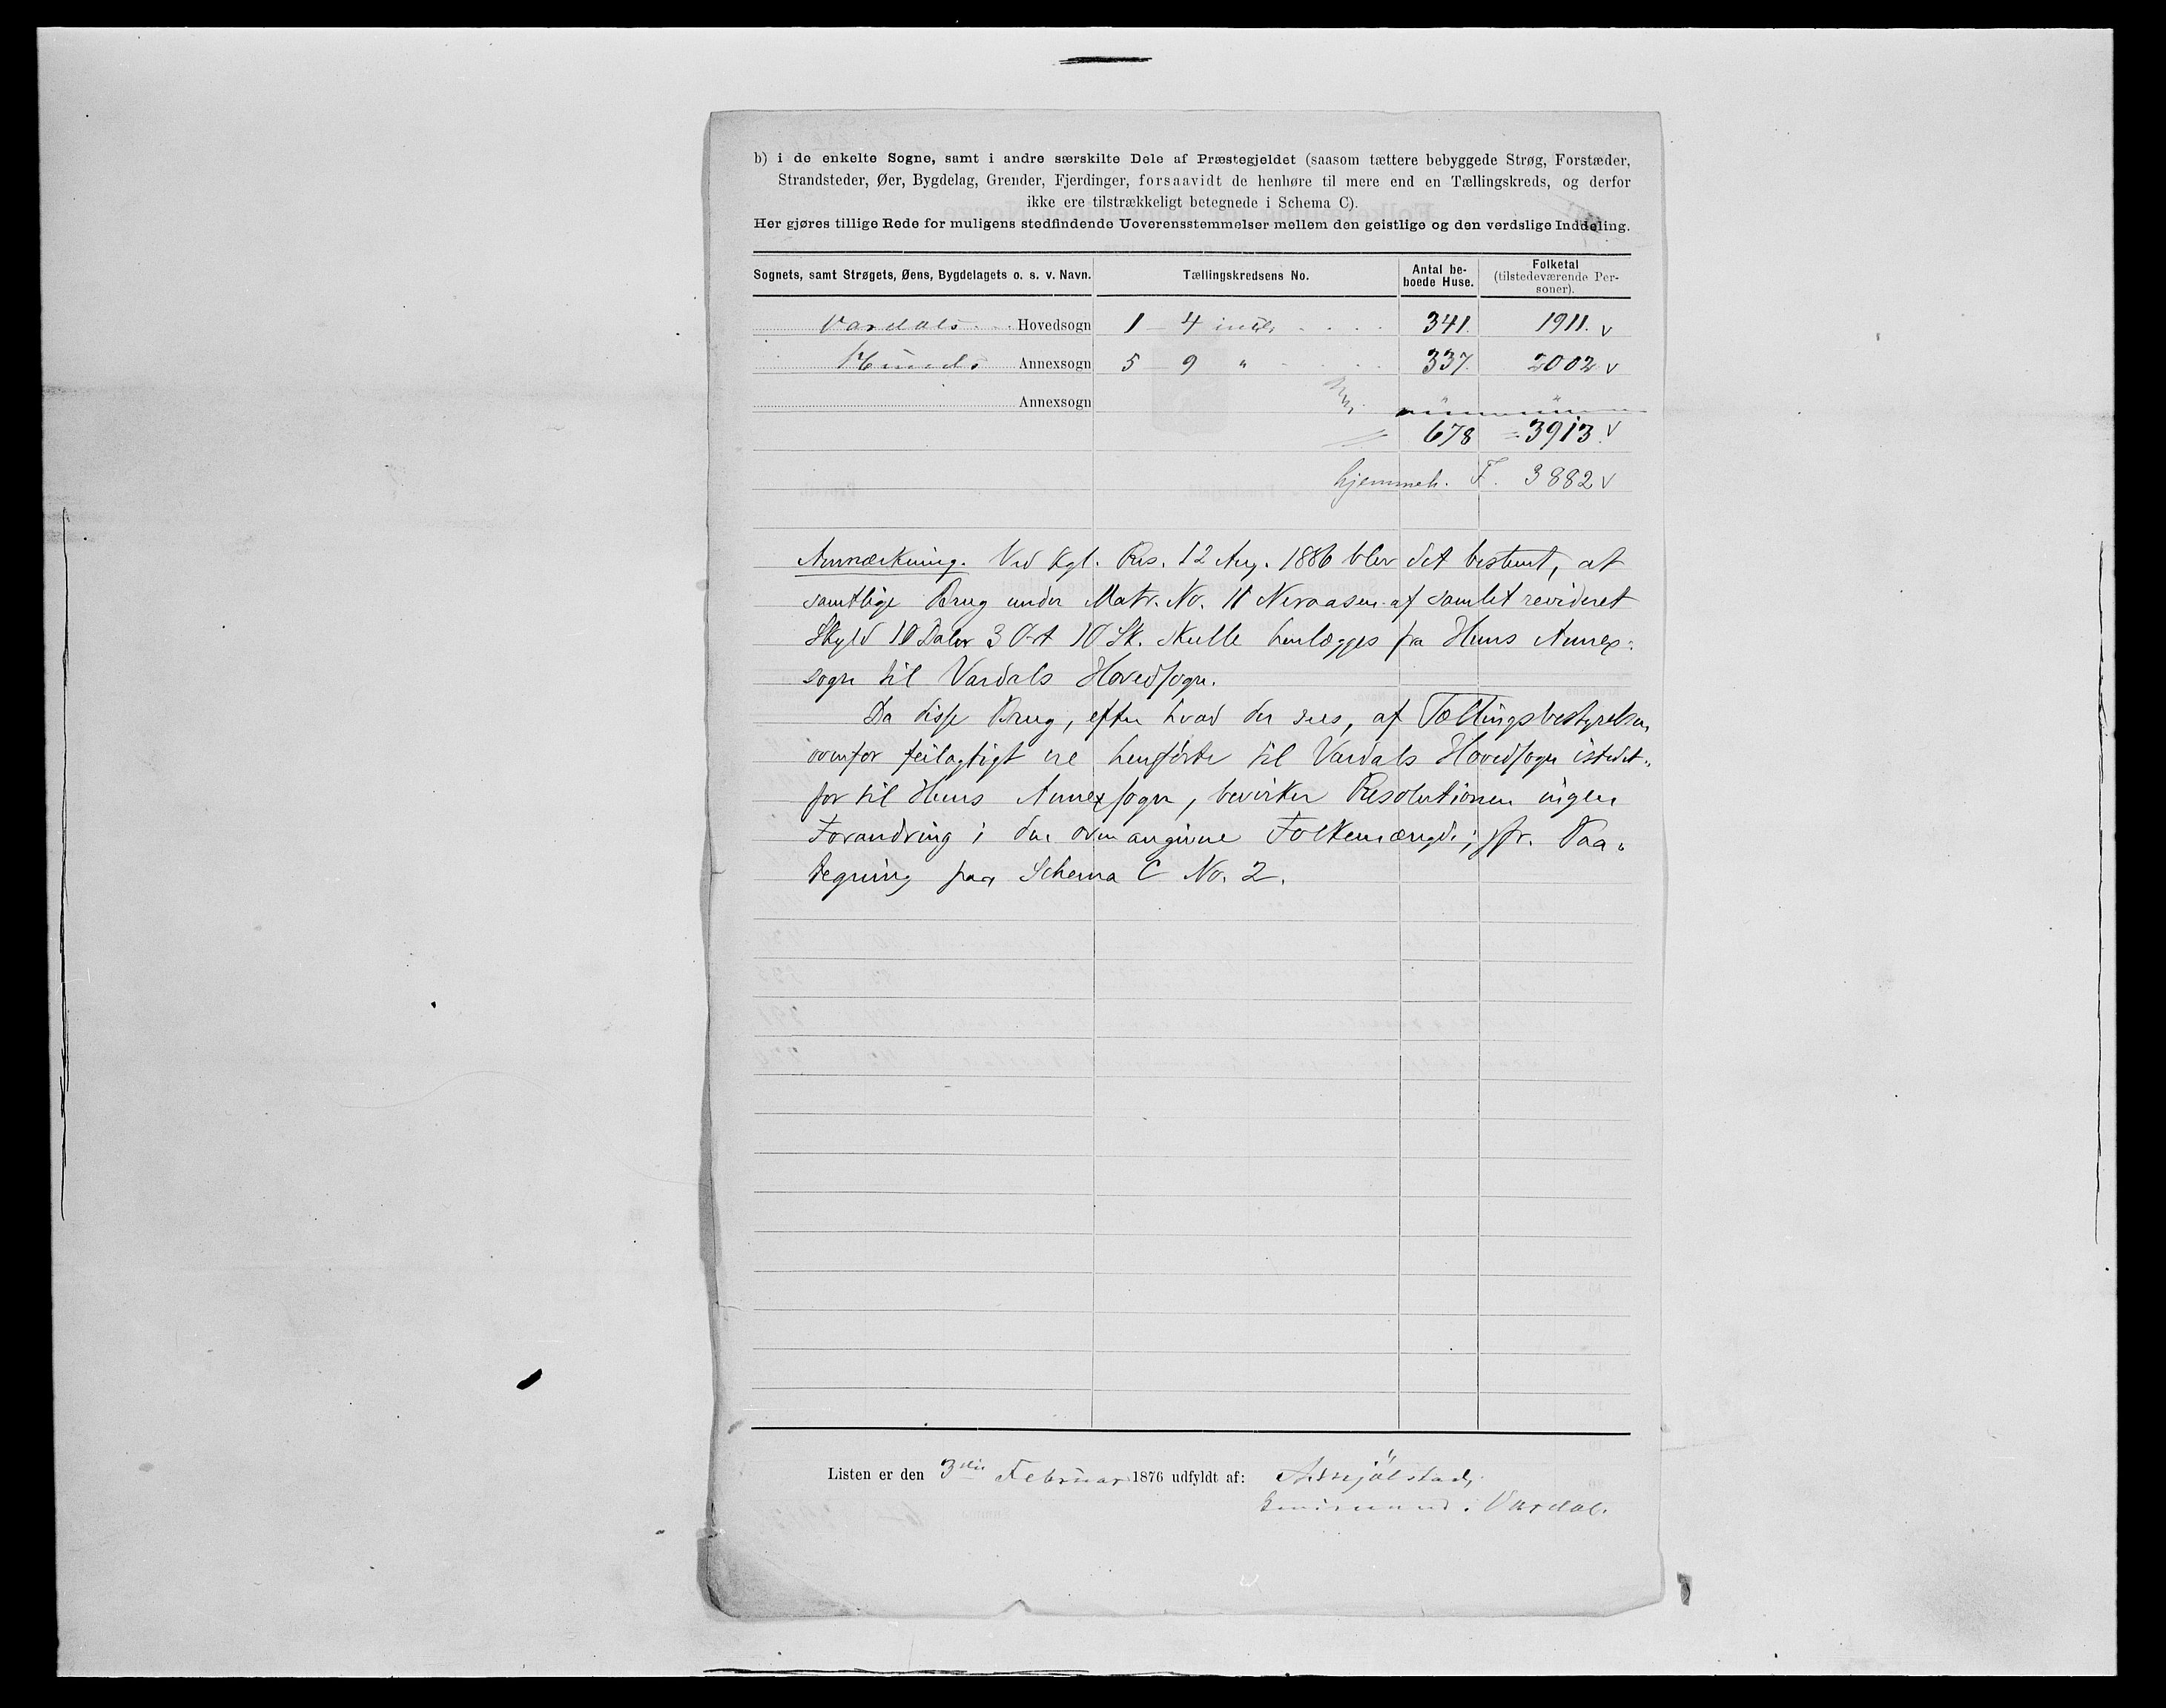 b) i de enkelte Sogne, samt i andre særskilte Dele af Præstegjeldet (saasom tættere bebyggede Strøg, Forstæder,
Strandsteder, Øer, Bygdelag, Grender, Fjerdinger, forsaavidt de henhøre til mere end en Tællingskreds, og derfor
ikke ere tilstrækkeligt betegnede i Schema C).
Her gjøres tillige Rede for muligens stedfindende Uoverensstemmelser mellem den geistlige og den verdslige Inddeling.
Sognets, samt Strøgets, Øens, Bygdelagets o. s. v. Navn. Tællingskredsens No. Antal beboede Huse. Folketal (tilstedeværende Personer).
Vardals Hovedsogn 1 - 4 incl. 341. 1911. v
Hunds Annexsogn 5 - 9 " 337. 2002 v
Annexsogn
678 = 3913. v
hjemmeh. F. 3882 v
Anmærkning. Ved Kgl. Res. 12 Aug. 1886 blev det bestemt, at
samtlige Brug under Matr. No. 11 Neraasen af samlet revideret
Skyld 10 Daler 3 Ort 10 Sk. skulle henlægges fra Huns Annex-
sogn til Vardals Hovedsogn.
Da disse Brug, efter hvad der sees, af Tællingsbestyrelsen
ovenfor feilagtigt ere henførte til Vardals Hovedsogn istedet-
for til Huns Annexsogn, bevirker Resolutionen ingen
Forandring i den ovenangivne Folkemængde; jfr. Paa-
tegning paa Schema C No. 2.
Listen er den 3die Februar 1876 udfyldt af:
Lensmand i Vardal.